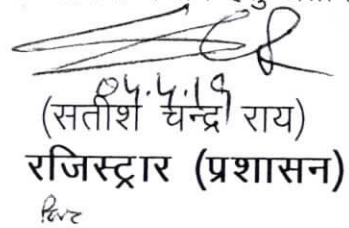 04.4.19
(सतीश चन्द्र राय)
रजिस्ट्रार (प्रशासन)